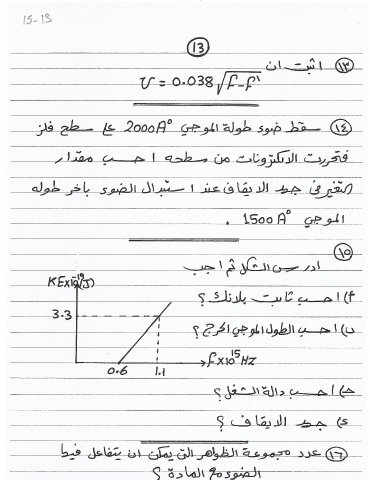 15-13
13
١٣ اثبت ان
v = 0.038 √f-f'
١٤ سقط ضوء طولة الموجي 2000A° على سطح فلز
فتحررت الالكترونات من سطحه احسب مقدار
التغير في جهد الايقاف عند استبدال الضوء باخر طوله
الموجي 1500A° .
١٥ ادرس الشكل ثم اجب
KEx10¹⁹(J)
أ) احسب ثابت بلانك ؟
3.3
ب) احسب الطول الموجي الحرج ؟
fx10¹⁵HZ
0.6 1.1
ج) احسب دالة الشغل ؟
د) جهد الايقاف ؟
١٦ عدد مجموعة الظواهر التي يمكن ان يتفاعل فيها
الضوء مع المادة ؟